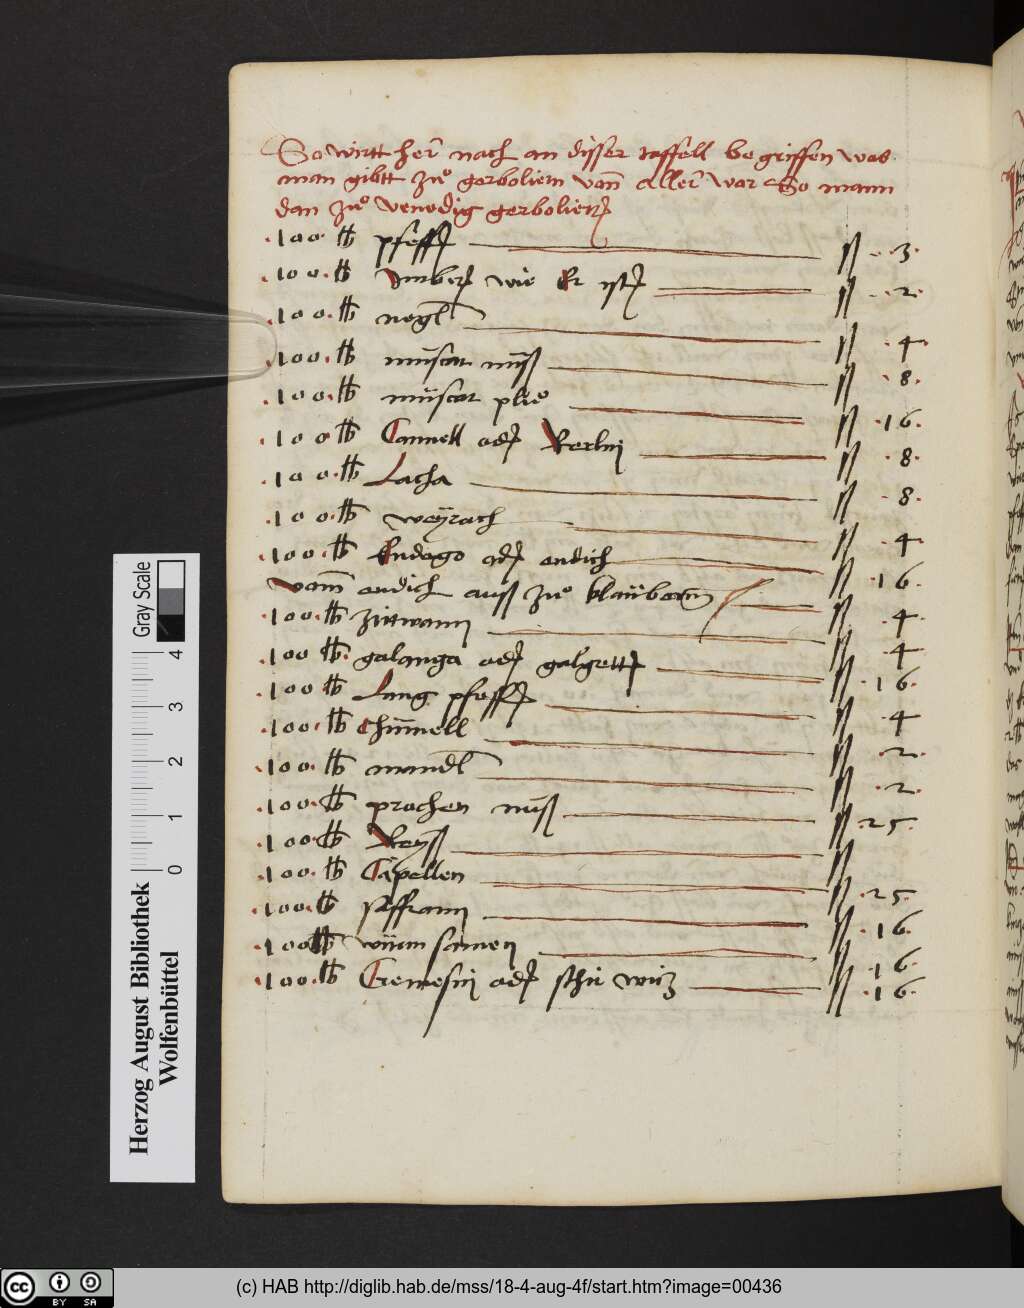 So wirtt her nach an disser taffell begriffen was
man gibtt zuo gerboliern vonn aller war So mann
dan zuo venedig gerboliert
·100· lb pfeffer ß · 3 ·
·100· lb Imber wie Er yst ß · 2 ·
·100· lb negl ß · 4 ·
·100· lb müscat nüß ß · 8 ·
·100· lb müscat plüe ß · 16 ·
·100 lb Cannell oder Rerlin ß · 8 ·
·100· lb Lacha ß · 8 ·
·100· lb weyrach ß · 4
·100· lb Endego oder endich ß · 16 ·
vom endich auß zuo klaübern ß · 4 ·
·100· lb zittwann ß · 4 ·
·100 lb· galanga oder galgett ß · 16 ·
·100 lb Lang pfeffer ß · 4
·100· lb Chümell ß · 2 ·
·100· lb mandl ß · 2 ·
·100· lb prochen nüß ß · 25 ·
·100· lb Reyß ß
·100· lb Capellen ß · 25 ·
·100· lb saffrann ß · 16 ·
·100 lb würm samen ß · 16 ·
·100· lb Gemesin oder ß · 16 ·
Gray Scale
0 1 2 3 4
Herzog August Bibliothek
Wolfenbüttel
cc BY SA
(c) HAB http://diglib.hab.de/mss/18-4-aug-4f/start.htm?image=00436